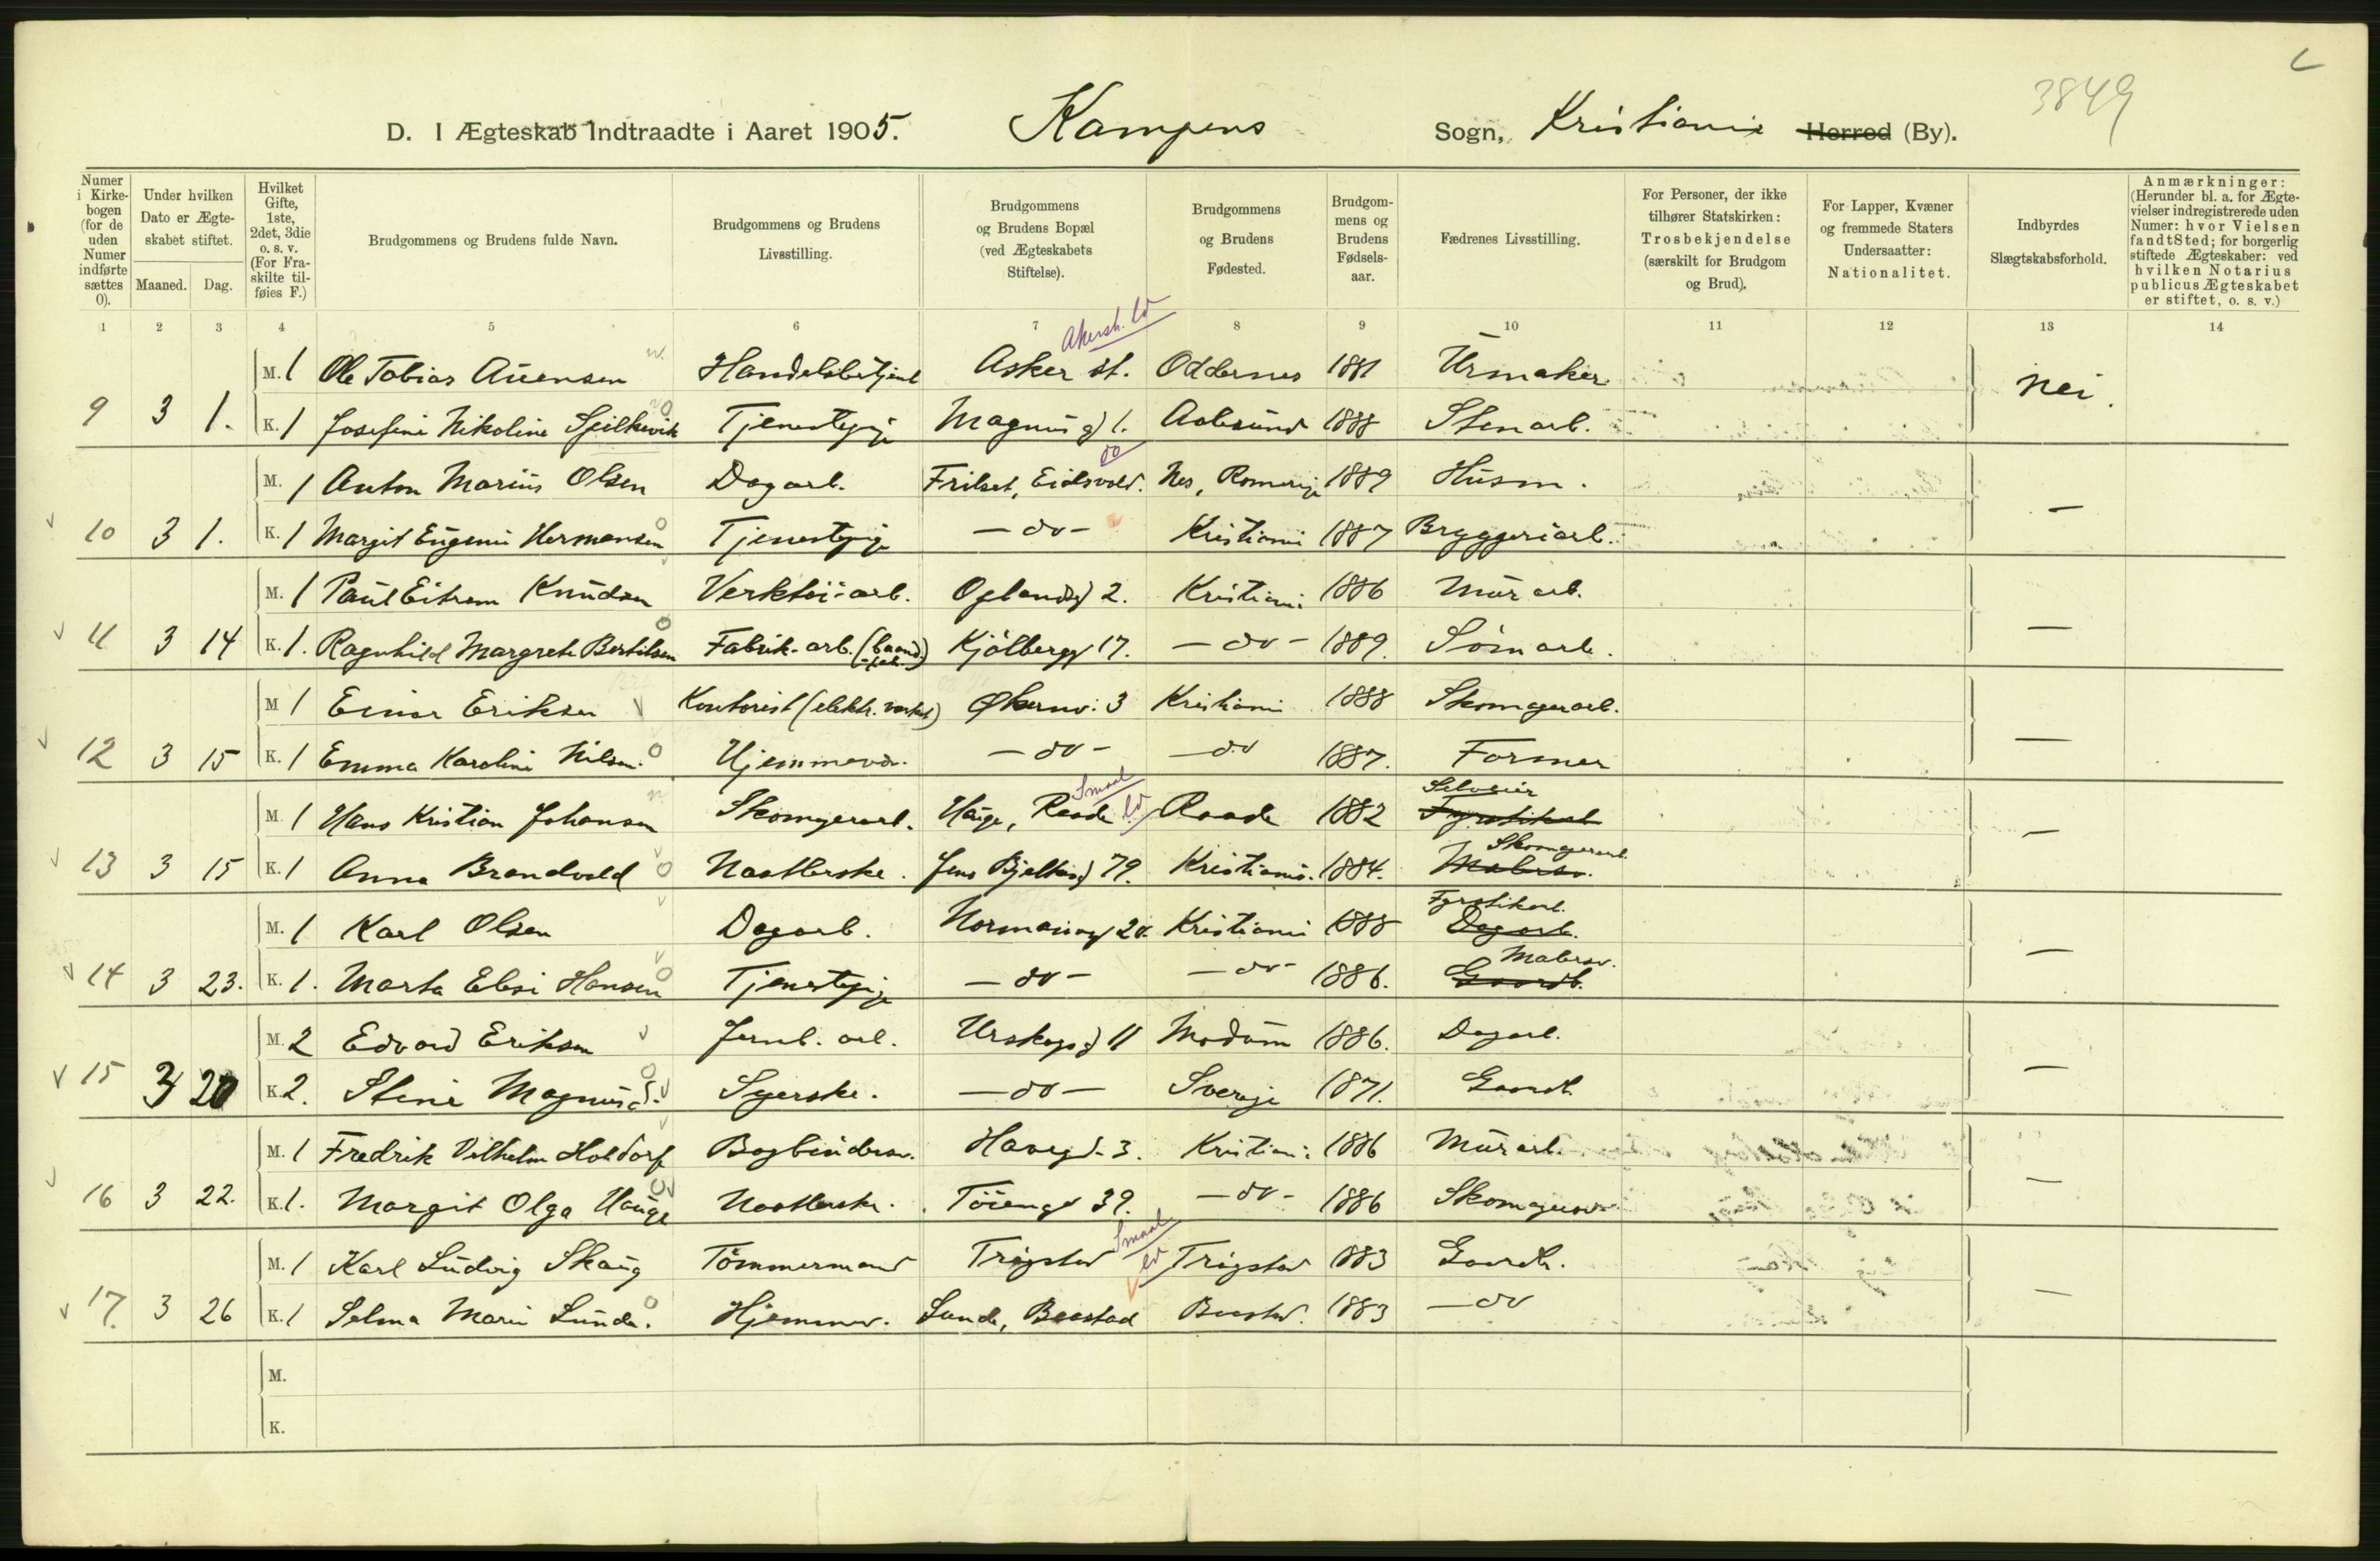 3849
D. I Ægteskab Indtraadte i Aaret 1905. Kampens Sogn, Kristiania Herred (By).
Numer i Kirkebogen (for de uden Numer indførte sættes 0).
Under hvilken Dato er Ægteskabet stiftet.
Maaned. Dag.
Hvilket Gifte, 1ste, 2det, 3die o. s. v. (For Fraskilte tilføies F.)
Brudgommens og Brudens fulde Navn.
Brudgommens og Brudens Livsstilling.
Brudgommens og Brudens Bopæl (ved Ægteskabets Stiftelse).
Brudgommens og Brudens Fødested.
Brudgommens og Brudens Fødselsaar.
Fædrenes Livsstilling.
For Personer, der ikke tilhører Statskirken: Trosbekjendelse (særskilt for Brudgom og Brud).
For Lapper, Kvæner og fremmede Staters Undersaatter: Nationalitet.
Indbyrdes Slægtskabsforhold.
Anmærkninger: (Herunder bl. a. for Ægtevielser indregistrerede uden Numer: hvor Vielsen fandt Sted; for borgerlig stiftede Ægteskaber: ved hvilken Notarius publicus Ægteskabet er stiftet, o. s. v.)
1 2 3 4 5 6 7 8 9 10 11 12 13 14
Akersh. ld
M. 1 Ole Tobias Auensen Handelsbetjent Asker st. Oddernes 1881 Urmaker
9 3 1. K. 1 Josefine Nikoline Spilkevik Tjenestepige Magnus g 1. Aalesund 1888 Stenarb. nei.
do
M. 1 Anton Marius Olsen Dagarb. Frilset, Eidsvold. Nes, Romerige 1889 Husm.
10 3 1. K. 1 Margit Eugenie Hermansen Tjenestepige - do - Kristiania 1887 Bryggeriarb. —
M. 1 Paul Eitrem Knudsen Verktöi-arb. Oplandsg 2. Kristiania 1886 Murarb.
11 3 14 K. 1. Ragnhild Margrete Bertilsen Fabrik-arb. Kjölberg 17. - do - 1889. —
M 1 Einar Eriksen Kontorist (elektr. verket) Økernv. 3 Kristiania 1888 Skomagerarb.
12 3 15 K. 1 Emma Karoline Nilsen. Hjemmevær. - do - - do 1887. Former —
Smaal. ld
M. 1 Hans Kristian Johansen Skomagerarb. Hauge, Raade Raade 1882
13 3 15 K. 1 Anna Brandvold Naatlerske. Jens Bjelkesg 79. Kristiania. 1884. Skomagerarb. Malersv. —
M. 1 Karl Olsen Dagarb. Normannsg 20. Kristiania 1888 Fyrstikarb. Dagarb.
14 3 23. K. 1. Marta Elise Hansen Tjenestepige - do - - do - 1886. Malersv. Gaardb. —
M. 2 Edvard Eriksen Jernb. arb. Urskogsg 11 Modum 1886. Dagarb.
15 3 20 K. 2. Stine Magnusd. Syerske. - do - Sverige 1871. Gaardb. —
M. 1 Fredrik Vilhelm Holdorf Bogbindersv. Haveg. 3. Kristiania 1886 Murarb.
16 3 22. K. 1. Margit Olga Hauge Naatlerske. Töiengt 39. - do - 1886 Skomagersv. —
Smaal. ld
M. 1 Karl Ludvig Skaug Tömmermand Trögstad Trögstad 1883 Gaardb.
17. 3 26 K. 1 Selma Marie Lunde. Hjemmev. Lunde, Baastad Baastad. 1883 - do —
M.
K.